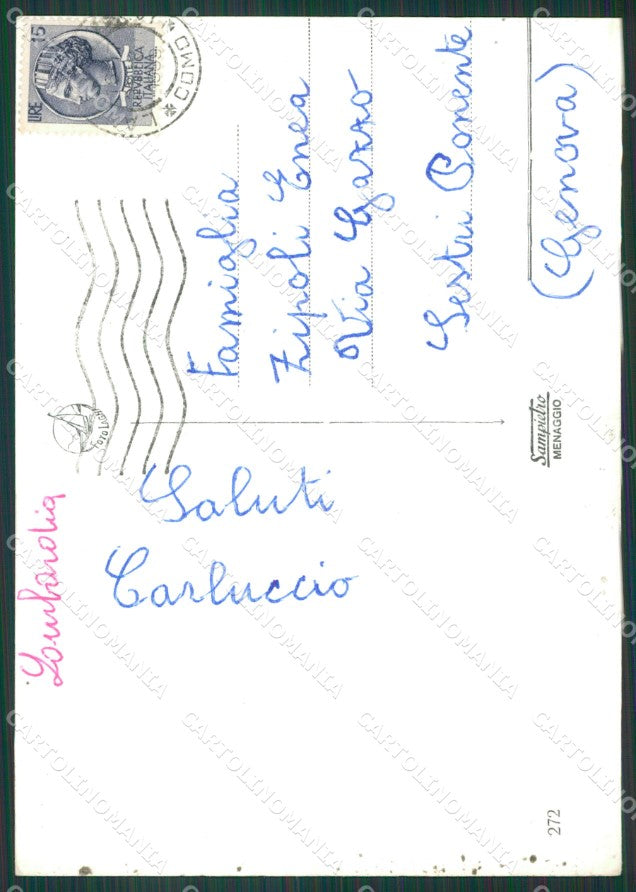 Lombardia
Saluti
Carluccio
15
LIRE
REPUBBLICA
ITALIANA
* COMO *
Famiglia
Zipoli Enea
Via Gazzo
Sestri Ponente
(Genova)
Sampietro
MENAGGIO
272
CARTOLINOMANIA